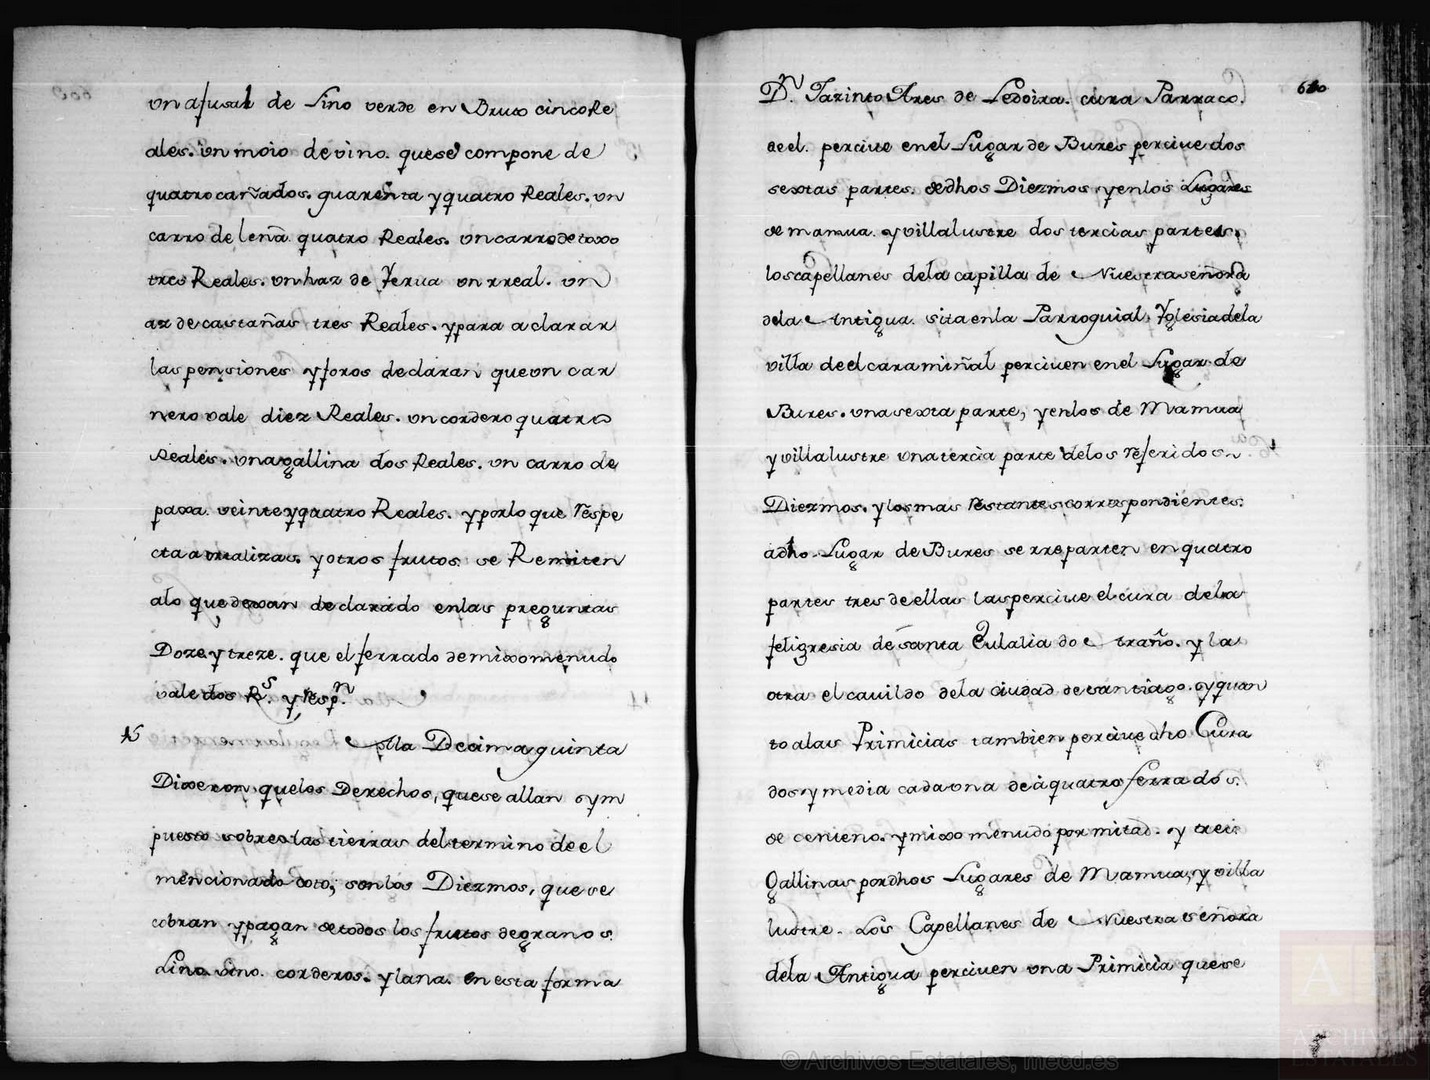 un afusal de Lino verde en Bruto cinco Re
ales. un moio de vino. que se compone de
quatro cañados. quarenta y quatro Reales. un
carro de leña quatro Reales. un carro de toxo
tres Reales. un haz de Yerua un rreal. un
az de castañas tres Reales. y para aclarar
las pensiones y foros declaran que un car
nero vale diez Reales. un cordero quatro
Reales. una gallina dos Reales. un carro de
paxa. veinte y quatro Reales. y por lo que respe
cta a ortalizas. y otros frutos se Remiten
a lo que dexan declarado en las preguntas
Doze y treze. que el ferrado de mixo menudo
vale dos R.s y resp.n
15 A la Decima quinta
Dixeron, que los Derechos, que se allan ym
puesto sobre las tierras del termino de el
mencionado coto; son los Diezmos, que se
cobran y pagan de todos los frutos de granos.
Lino. vino. corderos. y lana. en esta forma
610
D.n Jazinto Ares de Ledoira. cura Parraco.
de el. perciue en el Lugar de Bures perciue dos
sextas partes. de dhos Diezmos, y en los Lugares
de mamua. y villalustre dos tercias partes.
los capellanes de la capilla de Nuestra señora
de la Antigua. sita en la Parroquial Yglesia de la
villa de el caramiñal perciuen en el Lugar de
Bures. una sexta parte, y en los de Mamua
y villalustre una tercia parte de los referidos
Diezmos. y los mas restantes correspondientes.
a dho Lugar de Bures se rreparten en quatro
partes tres de ellas las perciue el cura de la
feligresia de santa Eulalia do Araño. y la
otra el cauildo de la ciudad de santiago. y quan
to a las Primicias tambien perciue dho Cura
dos y media cada una de à quatro ferrados.
de centeno. y mixo menudo por mitad. y tres
Gallinas por dhos Lugares de Mamua, y villa
lustre. Los Capellanes de Nuestra señora
de la Antigua perciuen una Primicia que se
© Archivos Estatales, mecd.es
ARCHIVOS
ESTATALES